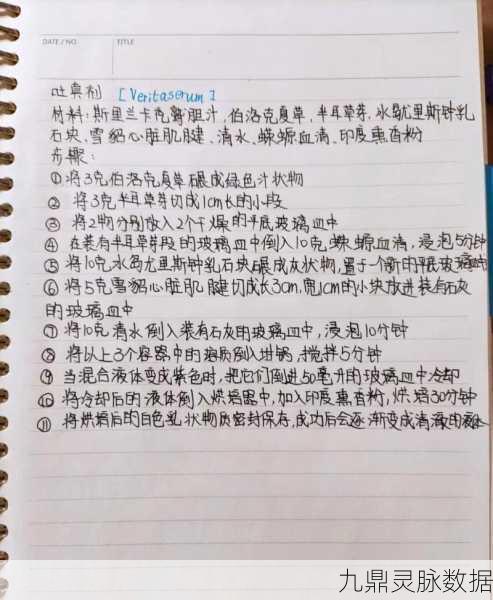 DATE / NO.
TITLE
吐真剂 [Veritaserum]
材料:斯里兰卡亮胆汁,伯洛克夏草,半耳草芽,水岛尤里斯钟乳
石块、雪貂心脏肌腱、清水、蝾螈血清、印度熏香粉
步骤:
①将3克伯洛克夏草碾成绿色汁状物
② 将3克半耳草芽切成1cm长的小段
③ 将2物分别放入2个干燥的平底玻璃皿中
④ 在装有半耳草芽段的玻璃皿中倒入10克蝾螈血清,浸泡5分钟
⑤ 将10克水岛尤里斯钟乳石块碾成灰状物,置于一个新的平底玻璃皿内
⑥ 将5克雪貂心脏肌腱切成长3cm,宽1cm的小块放进装有石灰
的玻璃皿中
⑦ 将10克清水倒入装有石灰的玻璃皿中,浸泡10分钟
⑧ 将以上3个容器中的物质倒入坩锅,搅拌5分钟
⑨ 当混合液体变成紫色时,把它们倒进50毫升的玻璃皿中冷却
⑩ 将冷却后的液体倒入烘焙器中,加入印度熏香粉,烘焙30分钟
⑪ 将烘焙后的白色乳状物质密封保存,成功后会逐渐变成清澈的液体
九鼎灵脉数据